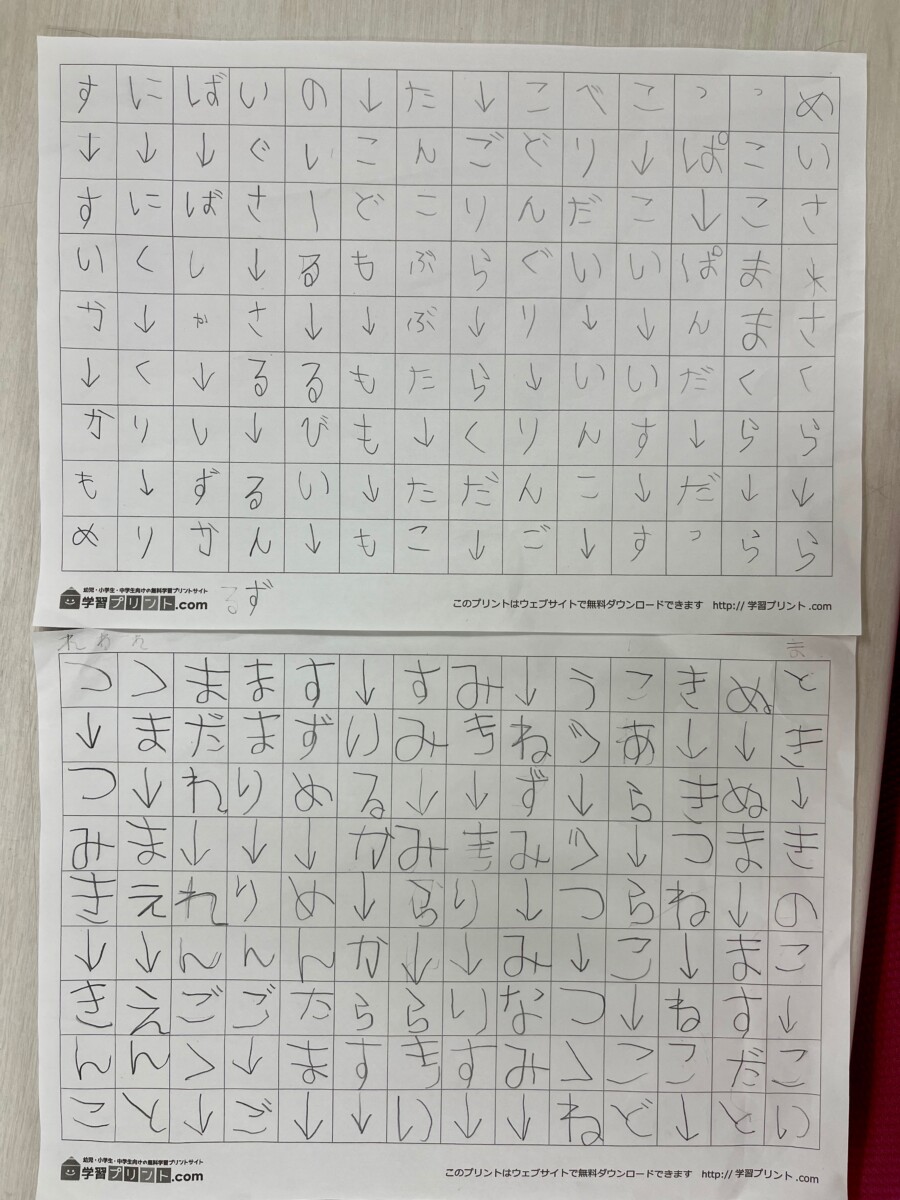 めいさ*さくら↓ら
っここままくら↓ら
っぱ↓ぱんだ↓だっ
こ↓こい↓いす↓す
べりだい↓いんこ↓
こどんぐり↓りんご
↓ごりら↓らくだ↓
たんこぶぶた↓たこ
↓こども↓もも↓も
のしーる↓るびい↓
いぐさ↓さる↓るん
ば↓ばしか↓しずか
に↓にく↓くり↓り
す↓すいか↓かもめ
ずる
幼児・小学生・中学生向けの無料学習プリントサイト
学習プリント.com
このプリントはウェブサイトで無料ダウンロードできます http://学習プリント.com
とき↓きのこ↓こい
ぬ↓ぬま↓ますだと
き↓きつね↓ねこ↓
こあら↓らこ↓こど
うり↓りつ↓つくね
↓ねずみ↓みなみ↓
みき↓きり↓りす↓
すみ↓みら↓らきい
↓いるか↓からす↓
すずめ↓めんたま↓
ままり↓りんご↓ご
まだれ↓れんごく↓
つま↓まえ↓えんと
つ↓つみき↓きんこ
幼児・小学生・中学生向けの無料学習プリントサイト
学習プリント.com
このプリントはウェブサイトで無料ダウンロードできます http://学習プリント.com